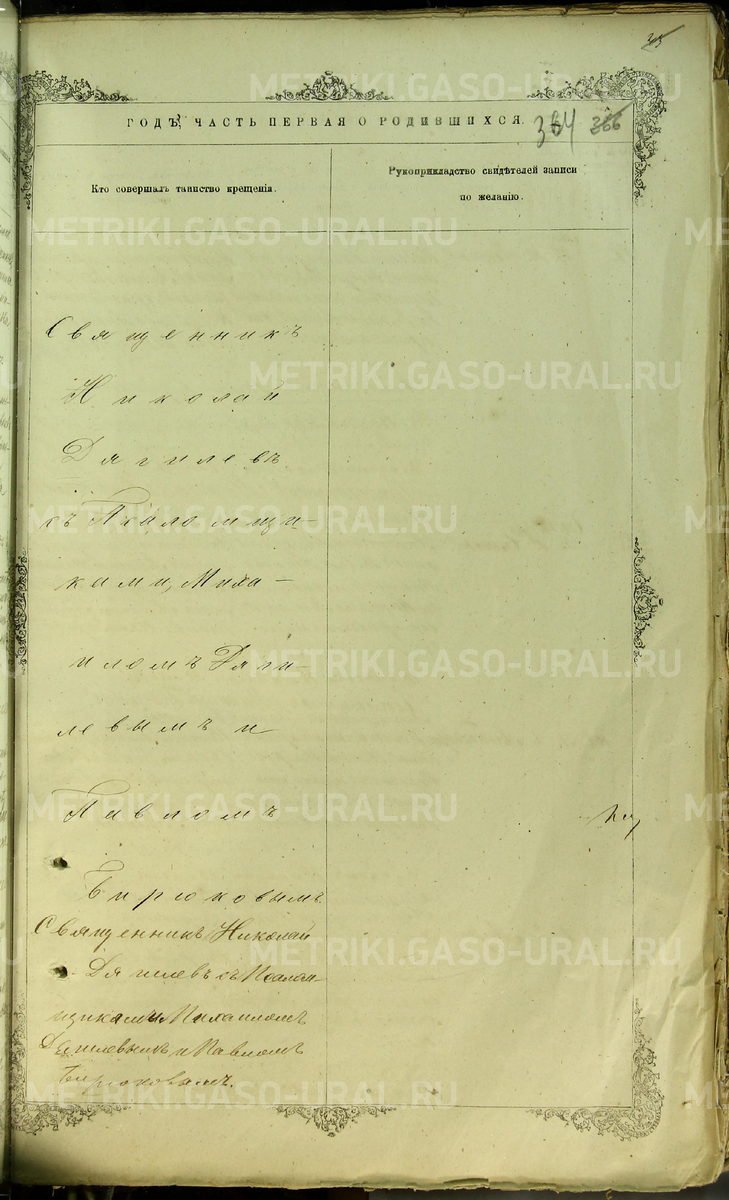 35
METRIKI.GASO-URAL.RU
ГОДѢ, ЧАСТЬ ПЕРВАЯ О РОДИВШИХСЯ.
364 366
Кто совершалъ таинство крещенія.
Рукоприкладство свидѣтелей записи
по желанію.
METRIKI.GASO-URAL.RU
Священникъ
METRIKI.GASO-URAL.RU
Николай
Дягилевъ
съ Псаломщи-
METRIKI.GASO-URAL.RU
ками, Миха-
иломъ Дяги-
METRIKI.GASO-URAL.RU
левымъ и
Павломъ
METRIKI.GASO-URAL.RU
Бирюковымъ
Священникъ Николай
METRIKI.GASO-URAL.RU
Дягилевъ съ Псалом-
щиками Михаиломъ
Дягилевымъ и Павломъ
Бирюковымъ.
METRIKI.GASO-URAL.RU